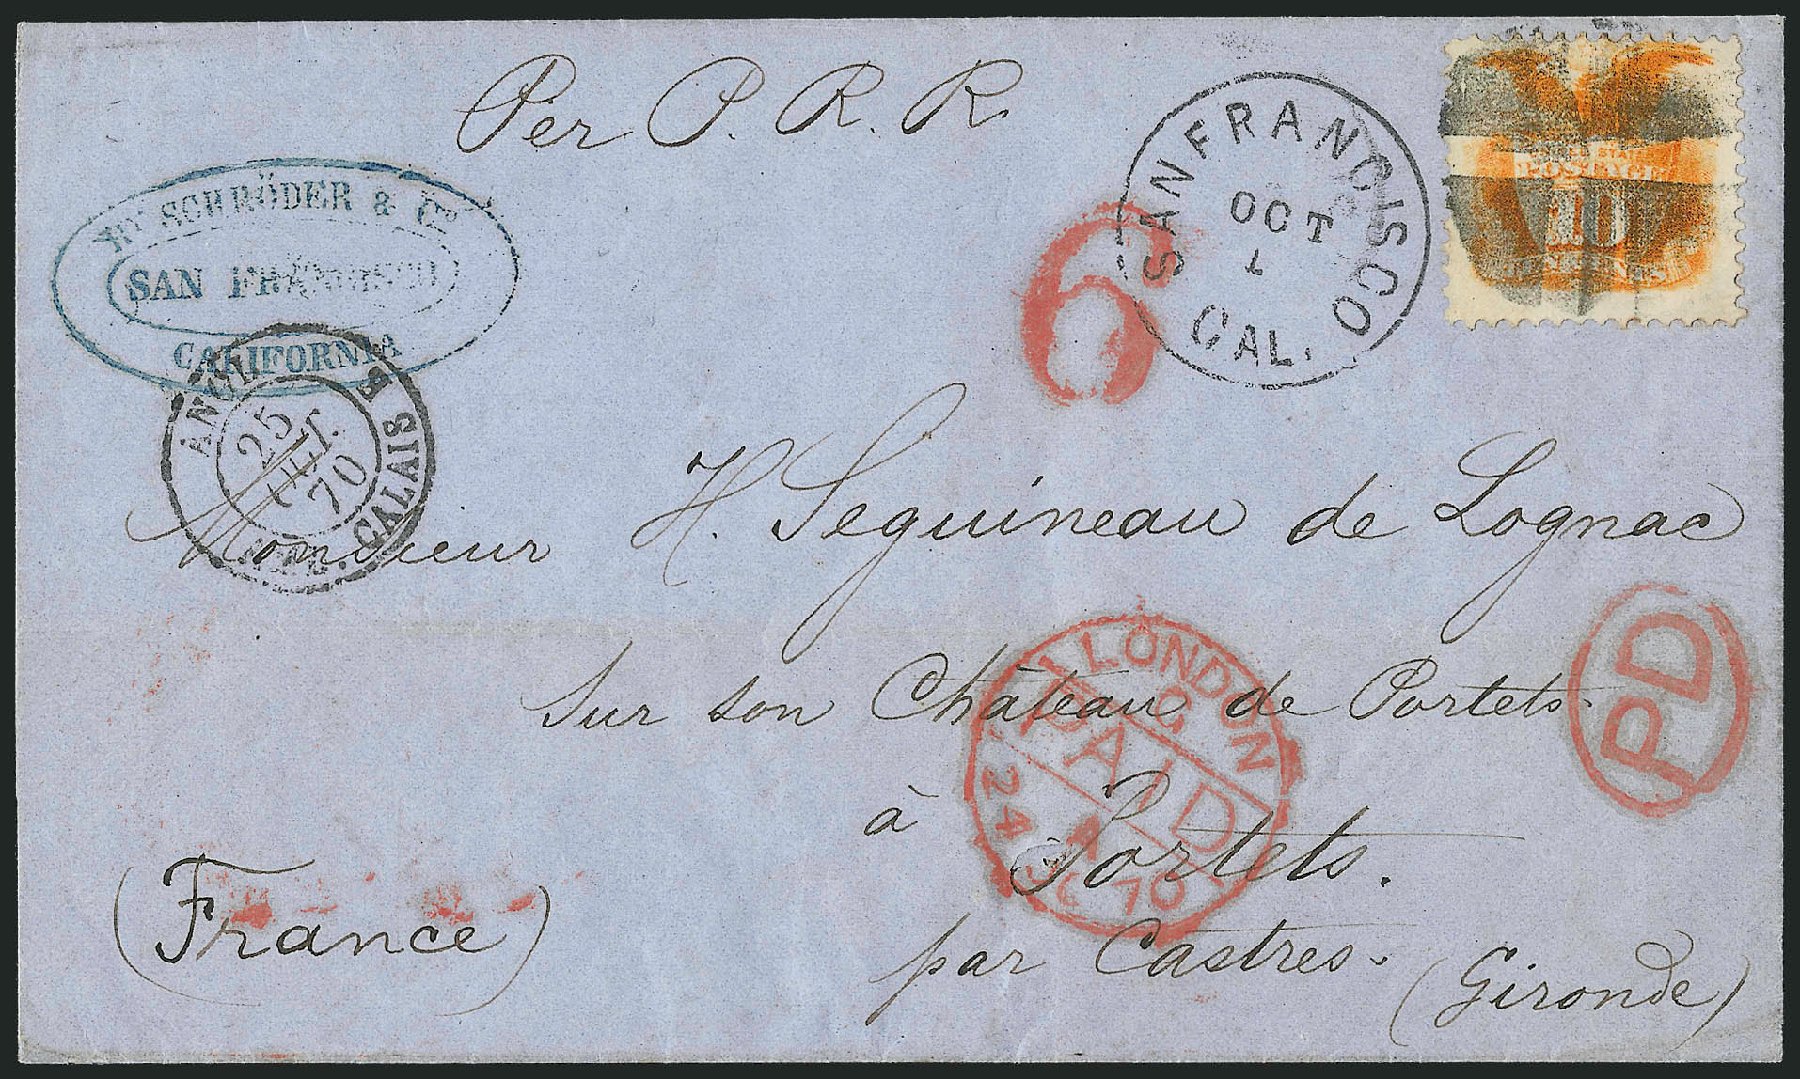 Per P. R. R.
Hy SCHRÖDER & Co
SAN FRANCISCO
CALIFORNIA
SAN FRANCISCO
OCT
1
CAL.
6
POSTAGE
10
TEN CENTS
25
OCT.
70
CALAIS
Monsieur H. Seguineau de Lognac
Sur son Château de Portets.
à Portets.
par Castres. (Gironde)
(France)
LONDON
C
PAID
24
70
PD